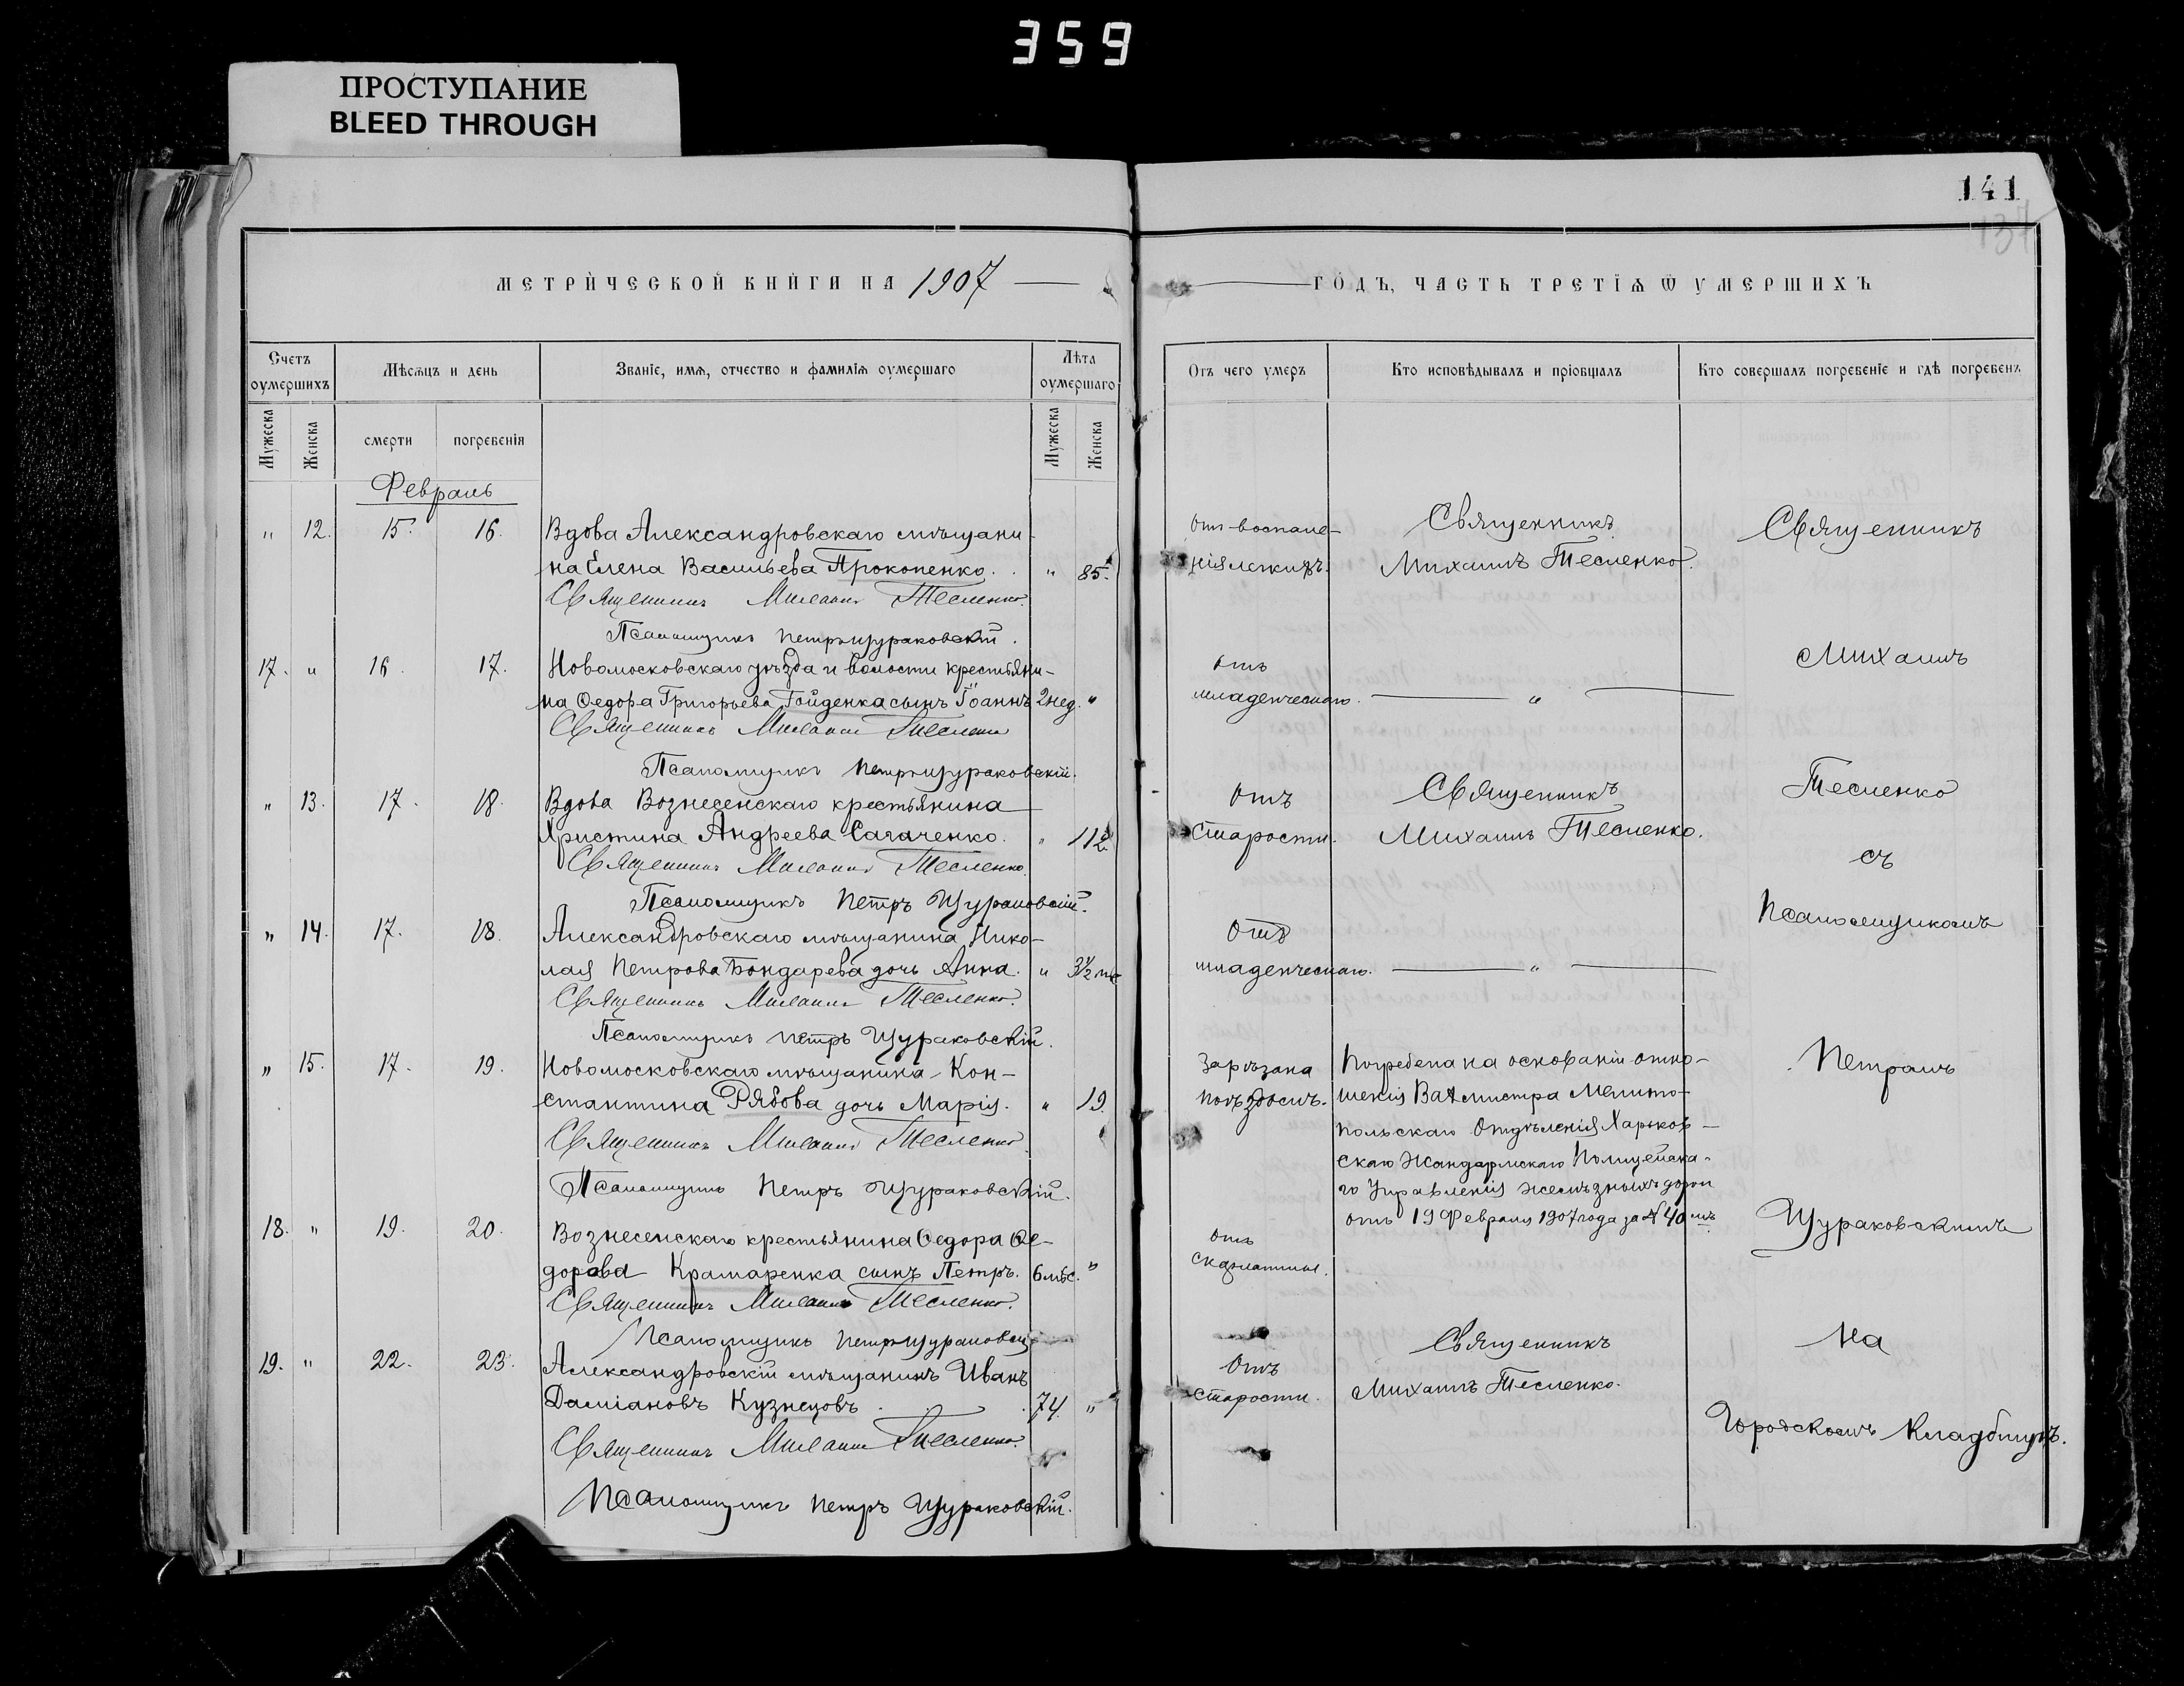 359
ПРОСТУПАНИЕ
BLEED THROUGH
141
137
МЕТРИЧЕСКОЙ КНИГИ НА 1907
Счетъ оумершихъ
Мѣсѧцъ и день
Званіе, имѧ, отчество и фамиліѧ оумершаго
Лѣта оумершаго
Мужеска
Женска
смерти
погребенія
Мужеска
Женска
Февраль
" 12. 15. 16. Вдова Александровскаго мѣщани-
на Елена Васильева Прокопенко. " 85.
Священникъ Михаилъ Тесленко.
Псаломщикъ Петръ Щураковскій.
17. " 16. 17. Новомосковскаго уѣзда и волости крестьяни-
на Ѳедора Григорьева Гойденка сынъ Іоаннъ 2 нед. "
Священникъ Михаилъ Тесленко
Псаломщикъ Петръ Щураковскій.
" 13. 17. 18. Вдова Вознесенскаго крестьянина
Христина Андреева Сагаченко. " 112
Священникъ Михаилъ Тесленко.
Псаломщикъ Петръ Щураковскій.
" 14. 17. 18. Александровскаго мѣщанина Нико-
лая Петрова Бондарева дочь Анна. " 3½ мѣс
Священникъ Михаилъ Тесленко.
Псаломщикъ Петръ Щураковскій.
" 15. 17. 19. Новомосковскаго мѣщанина Кон-
стантина Рябова дочь Марія. " 19.
Священникъ Михаилъ Тесленко
Псаломщикъ Петръ Щураковскій.
18. " 19. 20. Вознесенскаго крестьянина Ѳедора Ѳе-
дорова Крамаренка сынъ Петръ. 6 мѣс. "
Священникъ Михаилъ Тесленко.
Псаломщикъ Петръ
19. " 22. 23. Александровскій мѣщанинъ Иванъ
Даміановъ Кузнецовъ. 74. "
Священникъ Михаилъ Тесленко.
Псаломщикъ Петръ Щураковскій.
ГОДЪ, ЧАСТЬ ТРЕТІѦ Ѿ УМЕРШИХЪ
Отъ чего умеръ
Кто исповѣдывалъ и пріобщалъ
Кто совершалъ погребеніе и гдѣ погребенъ
Отъ воспале-
нія легкихъ.
Священникъ
Михаилъ Тесленко.
Отъ
младенческаго. "
Отъ
старости.
Священникъ
Михаилъ Тесленко.
Отъ
младенческаго. "
Зарѣзана
поѣздомъ.
Погребена на основаніи отно-
шенія Вахмистра Мелито-
польскаго Отдѣленія Харьков-
скаго Жандармскаго Полицейска-
го Управленія желѣзныхъ дорогъ
отъ 19 Февраля 1907 года за № 40мъ
Отъ
скарлатины.
Отъ
старости.
Священникъ
Михаилъ Тесленко.
Священникъ
Михаилъ
Тесленко
съ
Псаломщикомъ
Петромъ
Щураковскимъ
на
Городскомъ Кладбищѣ.